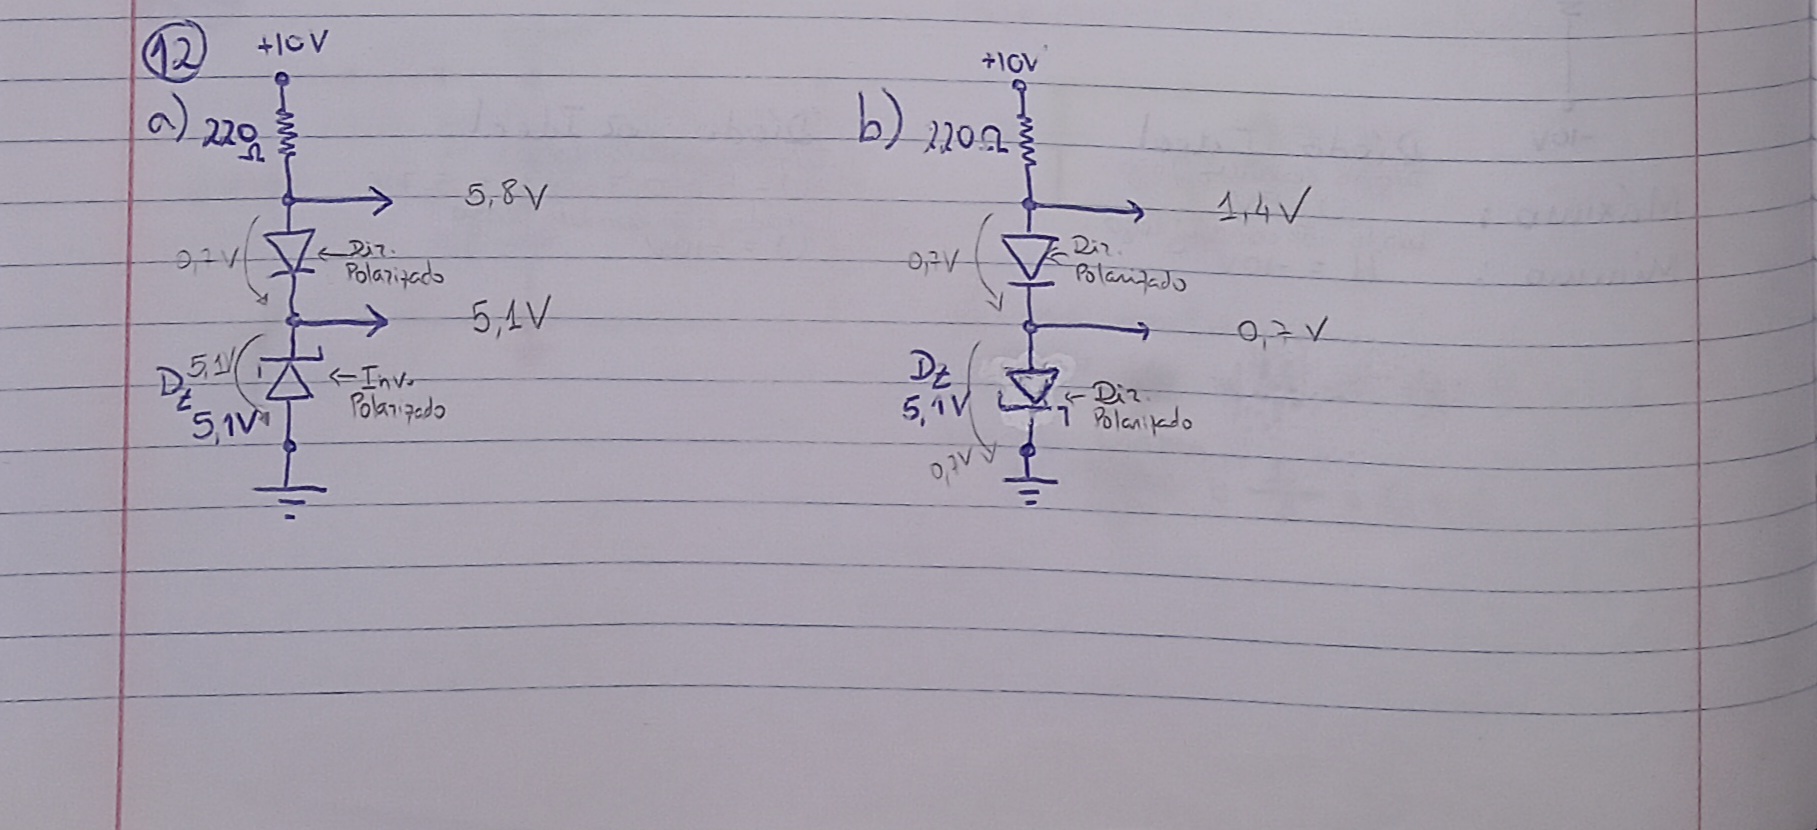 12
+10V
a) 220Ω
5,8V
0,7V
Dir.
Polarizado
5,1V
5,1V
Dz
5,1V
Inv.
Polarizado
+10V
b) 220Ω
1,4V
0,7V
Dir.
Polarizado
0,7V
Dz
5,1V
Dir.
Polarizado
0,7V